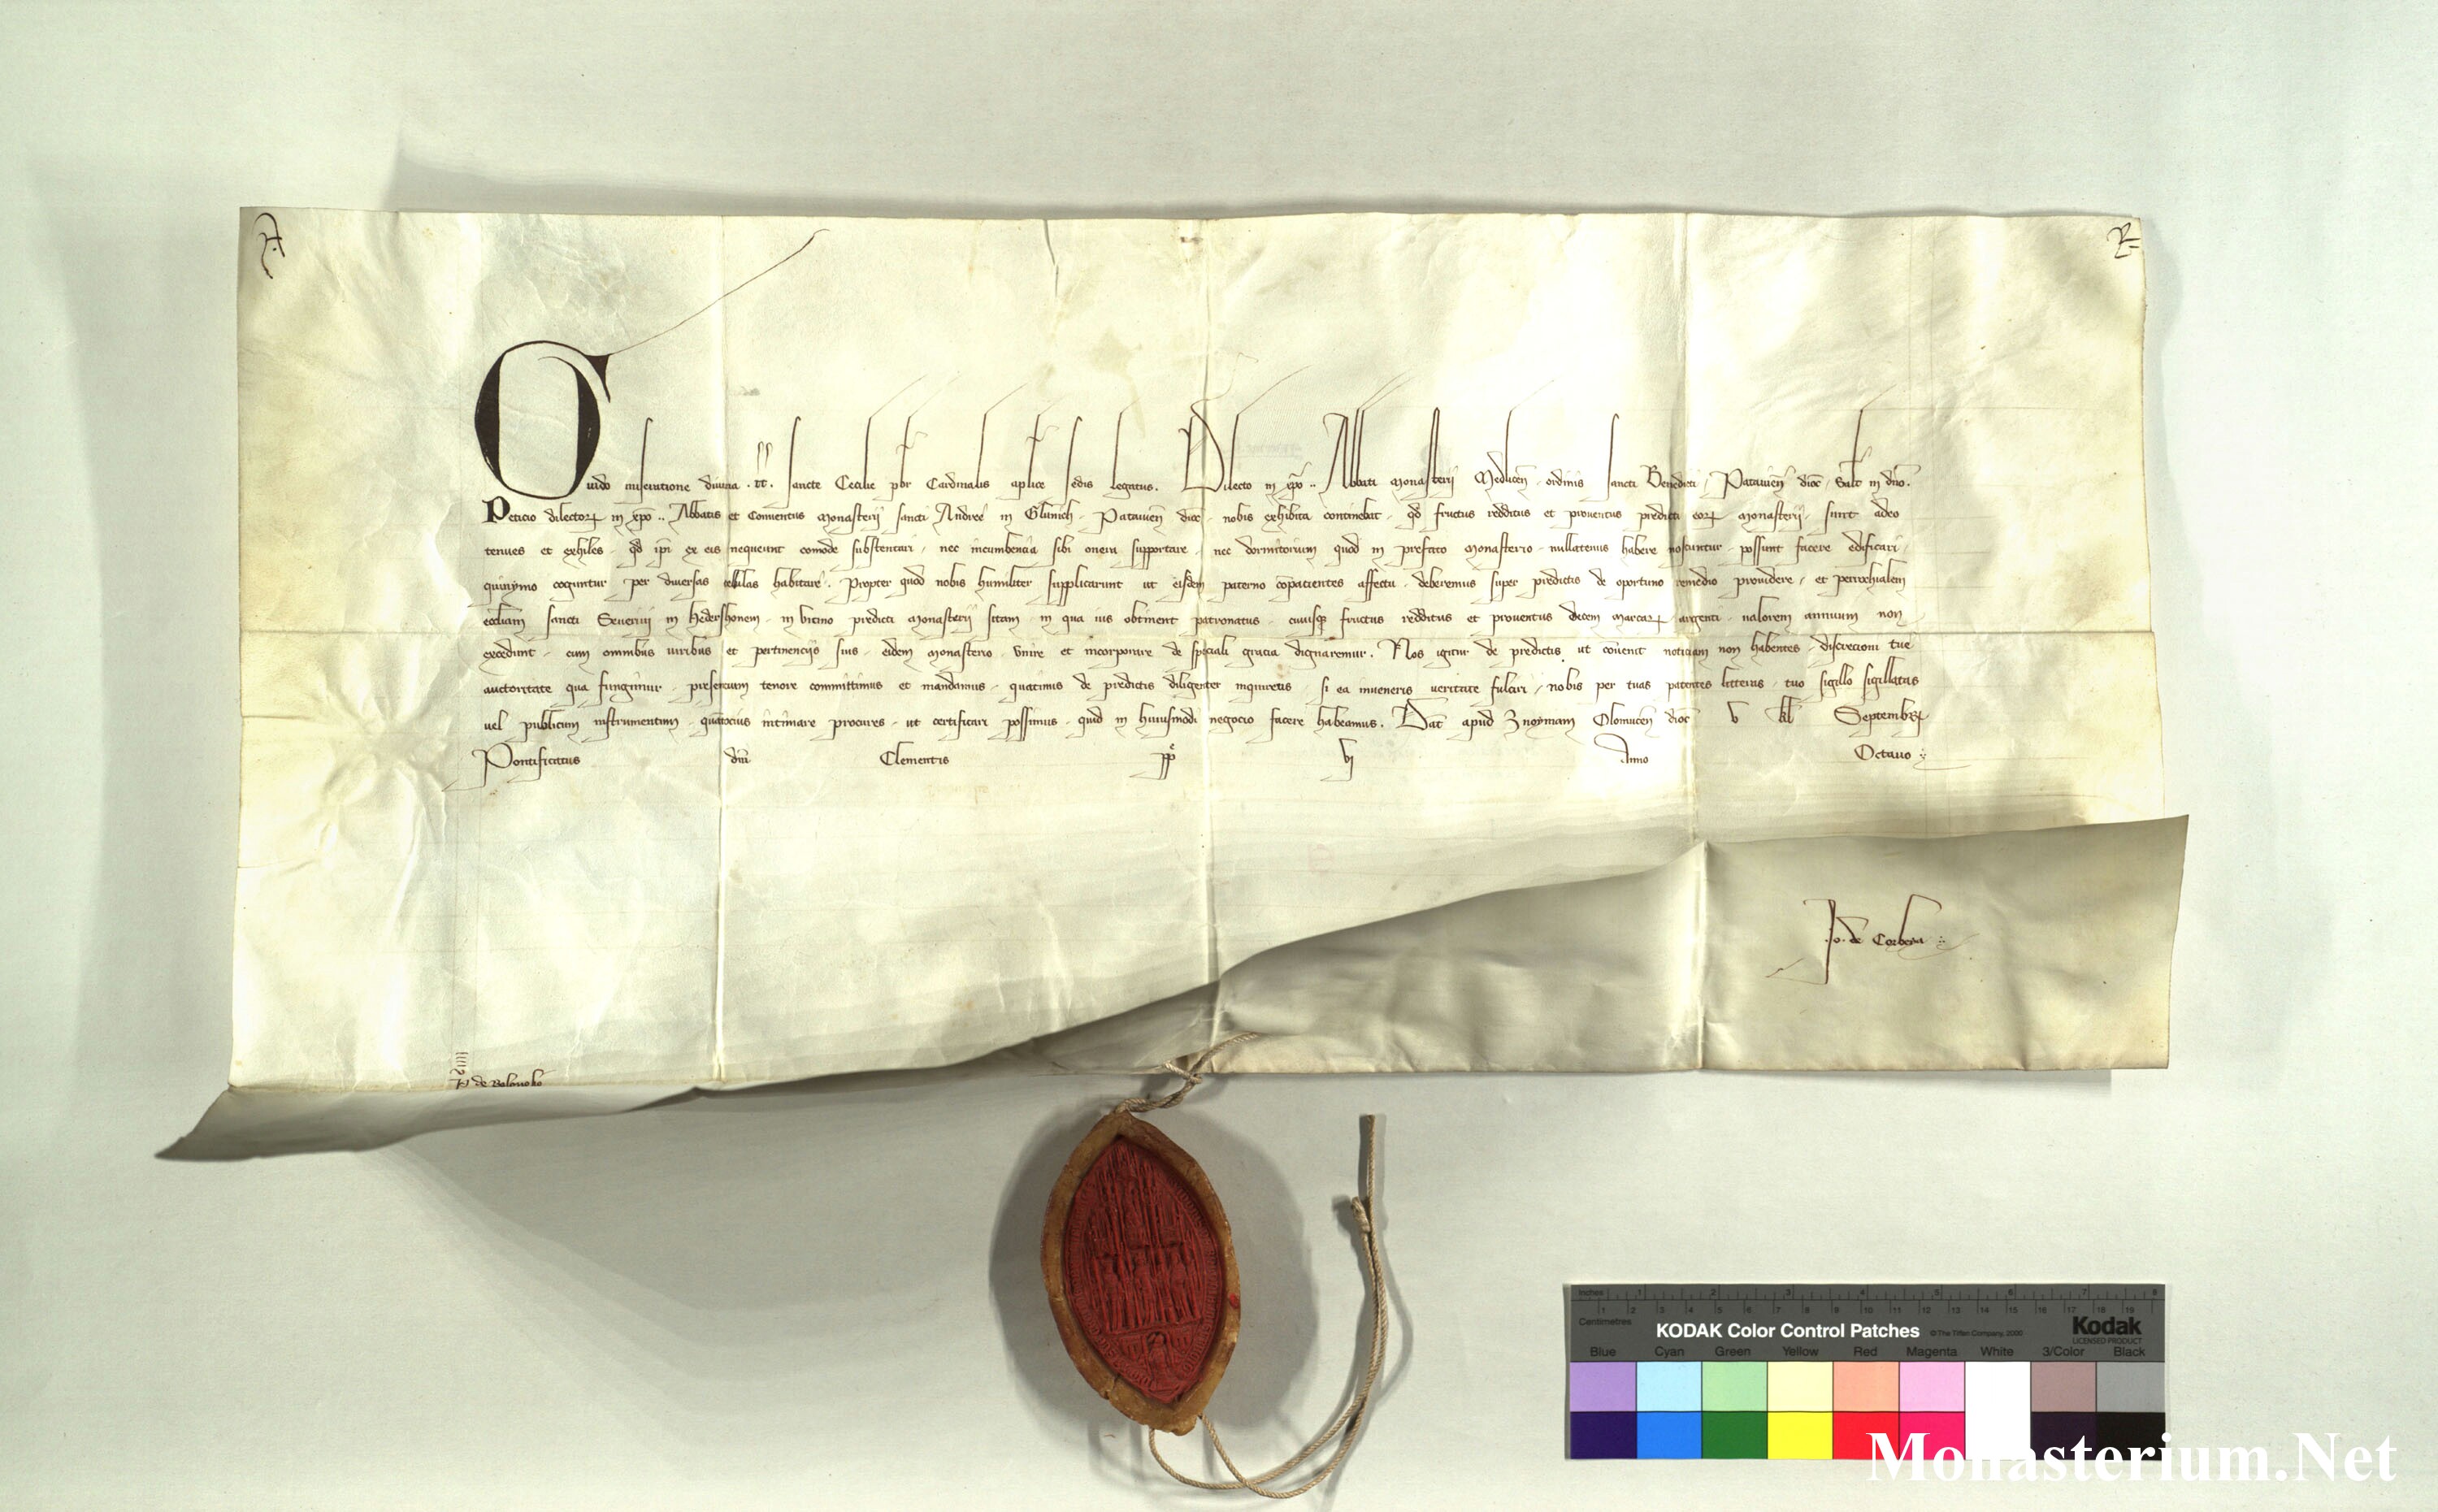 R
Guido miseratione divina .tt. sancte Cecilie pbr Cardinalis aplice sedis legatus. Dilecto in xpo .. Abbati monasterii Medlicen ordinis sancti Benedicti Patavien dioc salt in dno.
Peticio dilectorum in xpo .. Abbatis et Conventus monasterii sancti Andree in Glunich Patavien dioc nobis exhibita continebat qd fructus redditus et proventus predicti eorum monasterii sunt adeo
tenues et exhiles qd ipi ex eis nequeunt comode substentari nec incumbencia sibi onera supportare nec dormitorium quod in prefato monasterio nullatenus habere noscuntur possunt facere edificari
quinymo coguntur per diversas cellulas habitare. Propter quod nobis humiliter supplicarunt ut eisdem paterno copacientes affectu deberemus super predictis de oportuno remedio providere et parrochialem
eccliam sancti Severini in Hedershonem in vicino predicti monasterii sitam in qua ius obtinent patronatus cuiusque fructus redditus et proventus decem marcarum argenti valorem annuum non
excedunt cum omnibus iuribus et pertinenciis suis eidem monasterio unire et incorporare de speciali gracia dignaremur. Nos igitur de predictis ut convenit noticiam non habentes discrecioni tue
auctoritate qua fungimur presencium tenore committimus et mandamus quatinus de predictis diligenter inquiretis si ea inveneris veritate fulciri nobis per tuas patentes litteras tuo sigillo sigillatas
vel publicum instrumentum quantocius intimare procures ut certificari possimus quid in huiusmodi negocio facere habeamus. Dat apud Znoymam Olomucen dioc V kl Septembr
Pontificatus dni Clementis pp VI Anno Octavo
Jo. de Corbeya
P de Bolonoko
Inches 1 2 3 4 5 6 7 8
Centimetres 1 2 3 4 5 6 7 8 9 10 11 12 13 14 15 16 17 18 19
KODAK Color Control Patches © The Tiffen Company, 2000 Kodak
LICENSED PRODUCT
Blue Cyan Green Yellow Red Magenta White 3/Color Black
Monasterium.Net